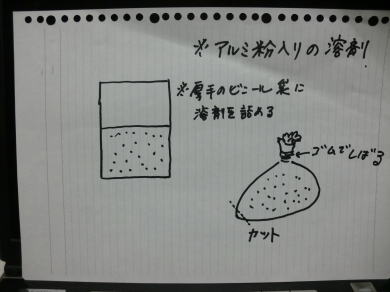 ※アルミ粉入りの溶剤
※厚手のビニール袋に
溶剤を詰める
←ゴムでしばる
カット